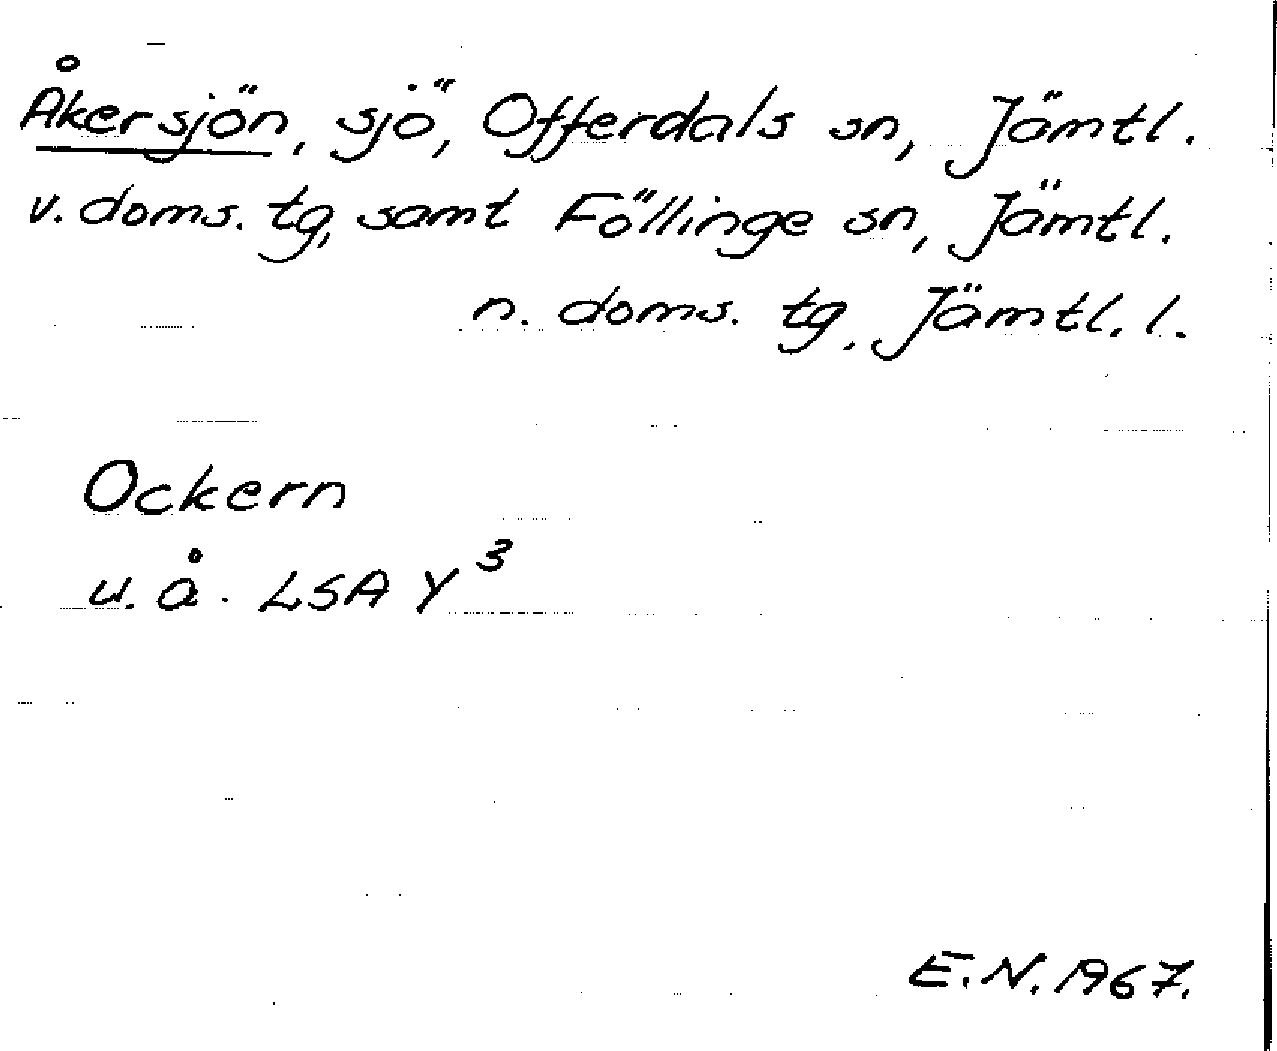 Åkersjön, sjö, Offerdals sn, Jämtl.
v. doms. tg, samt Föllinge sn, Jämtl.
n. doms. tg. Jämtl. l.
Ockern
u. å. LSA Y³
E.N. 1967.